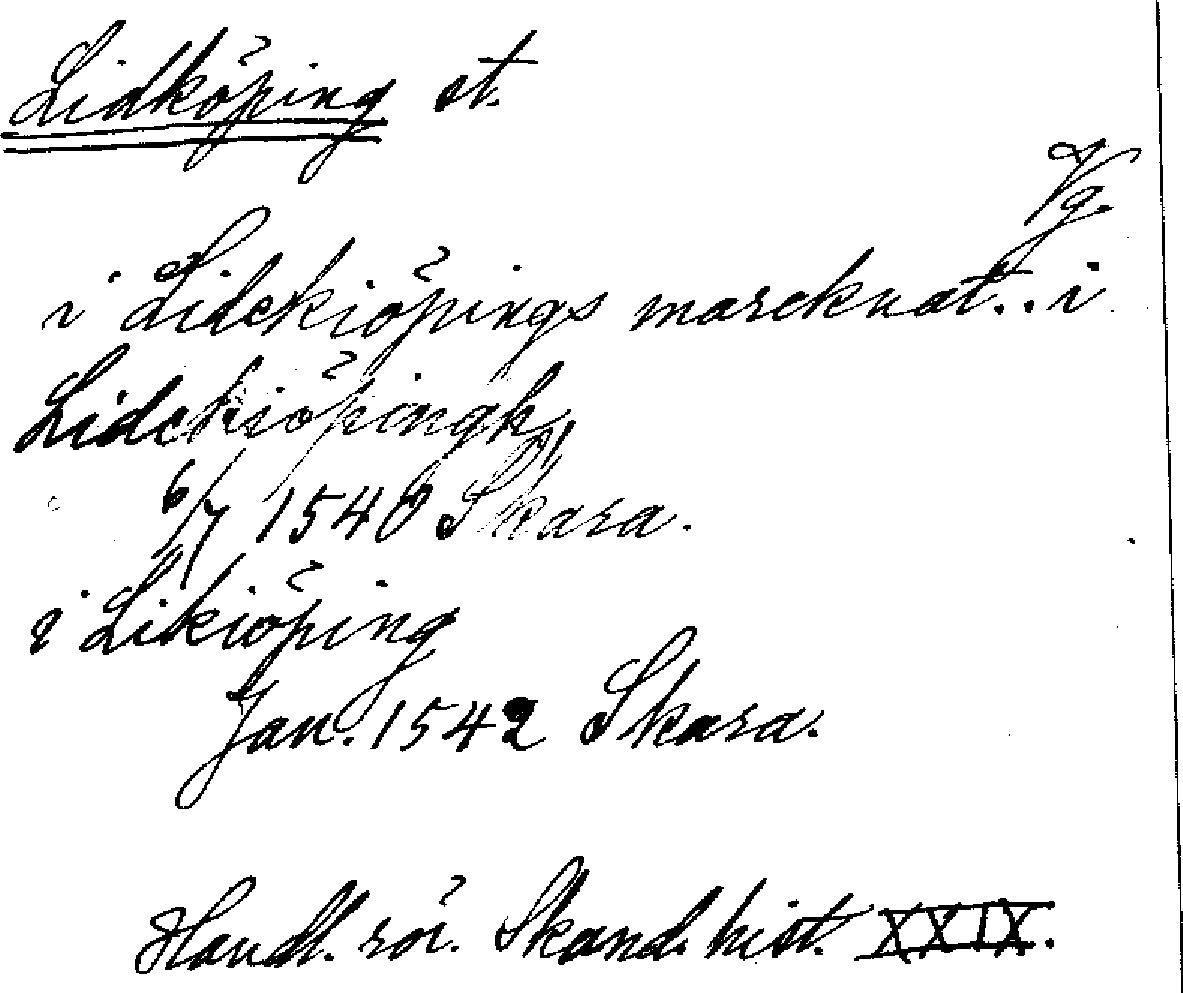 Lidköping st.
Vg.
i Lidekiöpings marcknat.. i
Lidekiöpingh
6/7 1540 Skara.
i Likiöping
Jan. 1542 Skara.
Handl. rör. Skand. hist. XXIX.